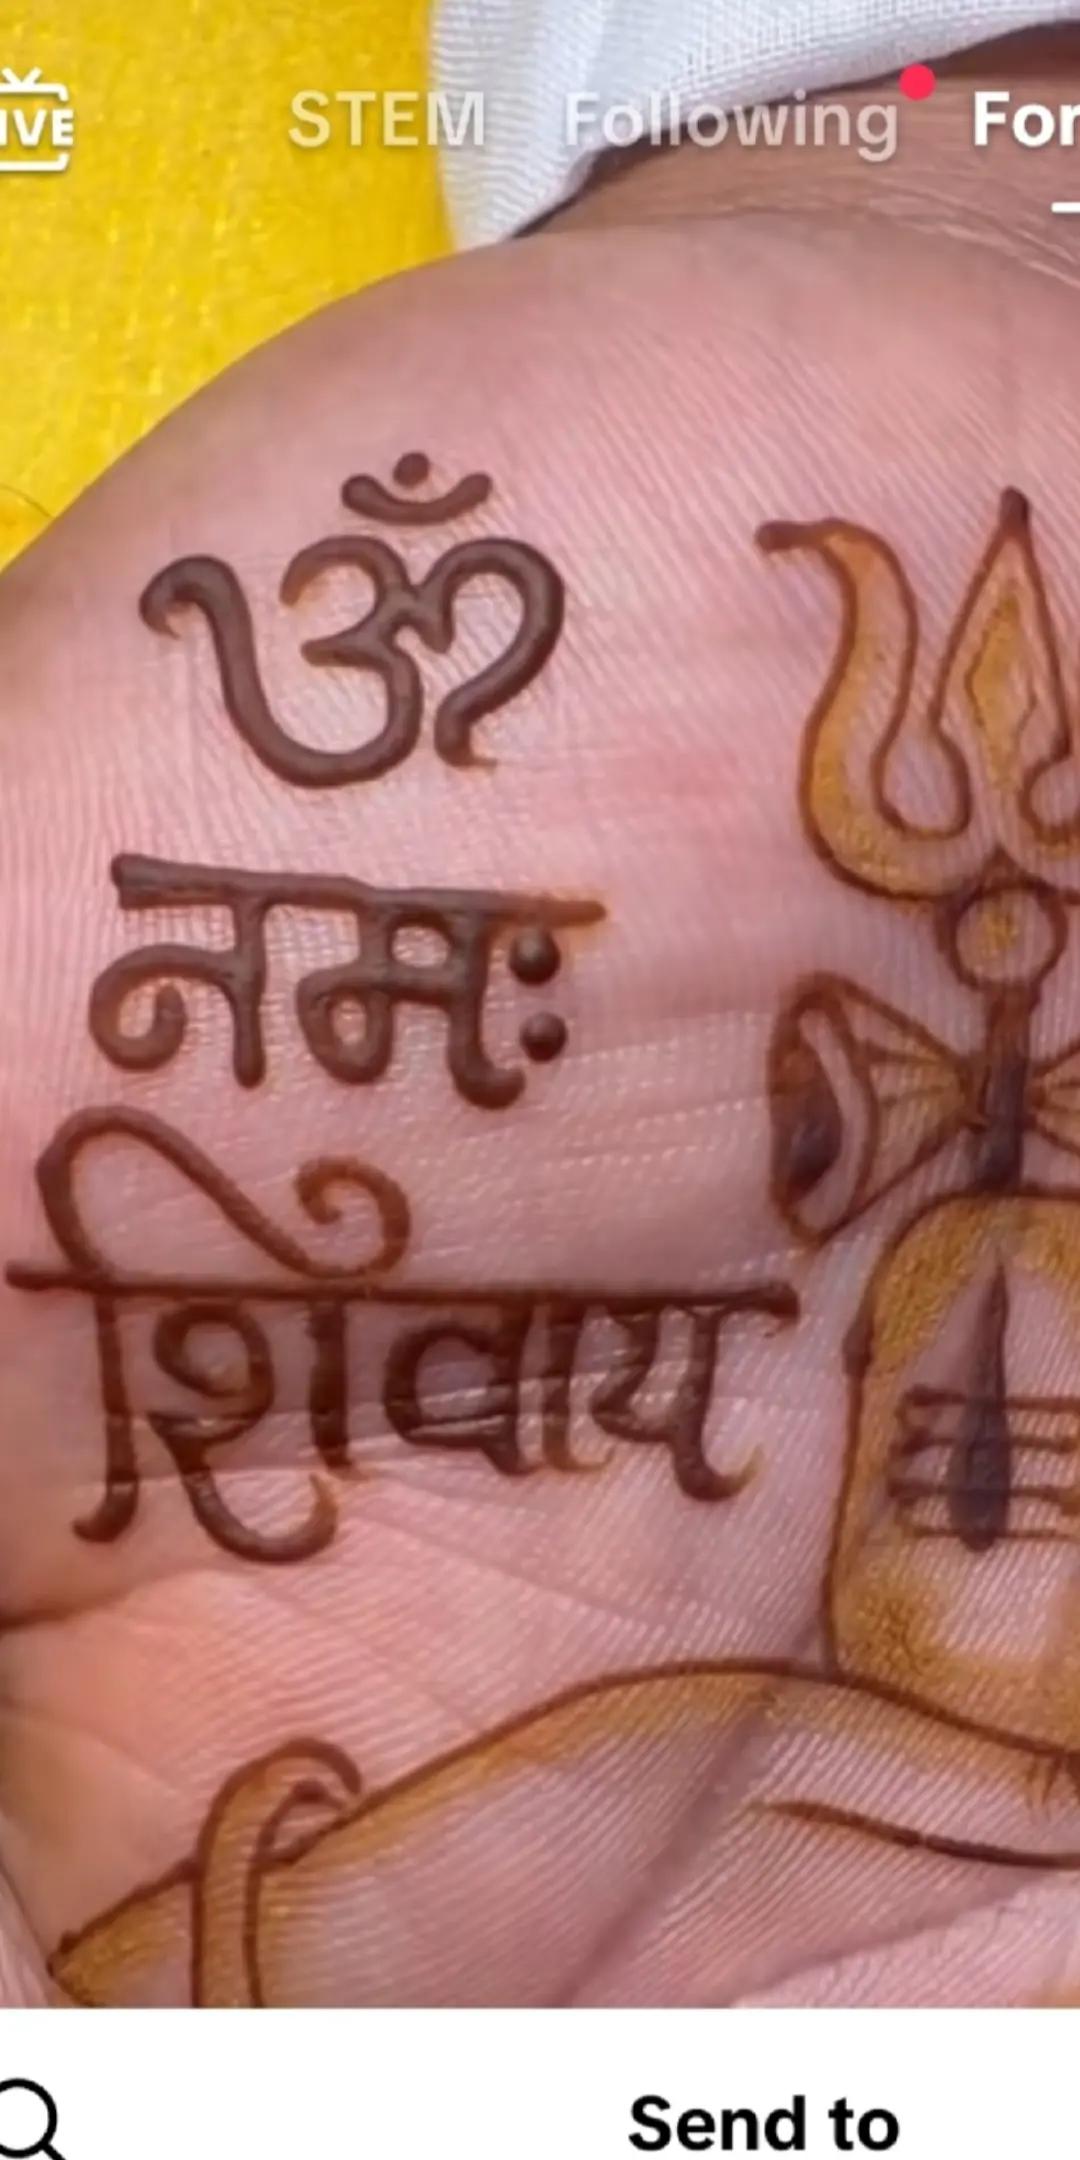 STEM Following
ॐ
नमः
शिवाय
Send to